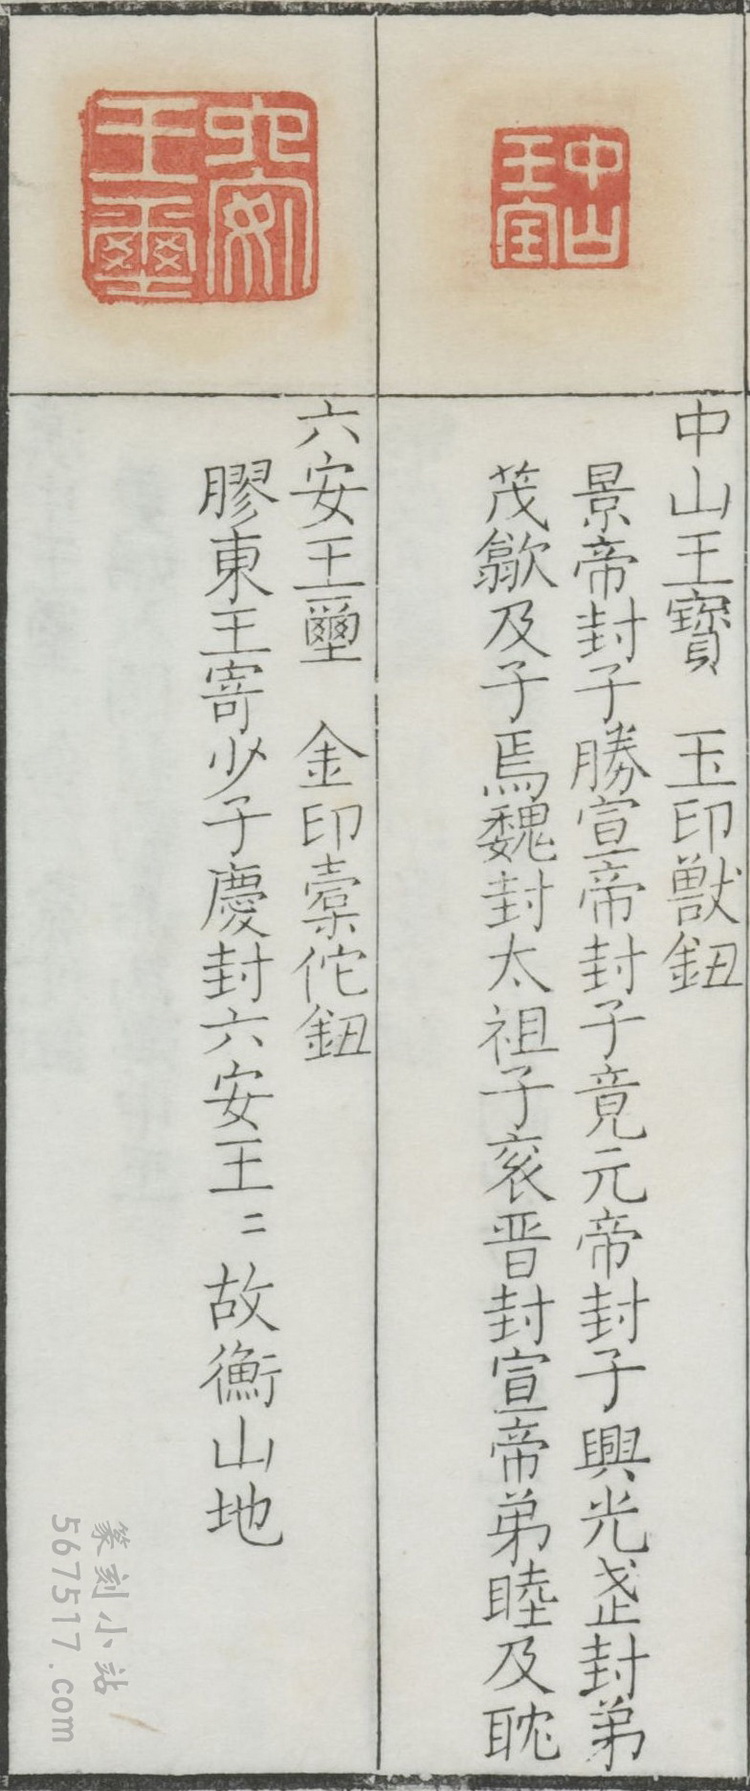 中山
王宝
中山王寳　玉印獸鈕
景帝封子勝宣帝封子竟元帝封子興光武封弟
茂歙及子焉魏封太祖子衮晋封宣帝弟睦及耽
六安
王壐
六安王壐　金印橐佗鈕
膠東王寄少子慶封六安王〻故衡山地
篆刻小站
567517.com